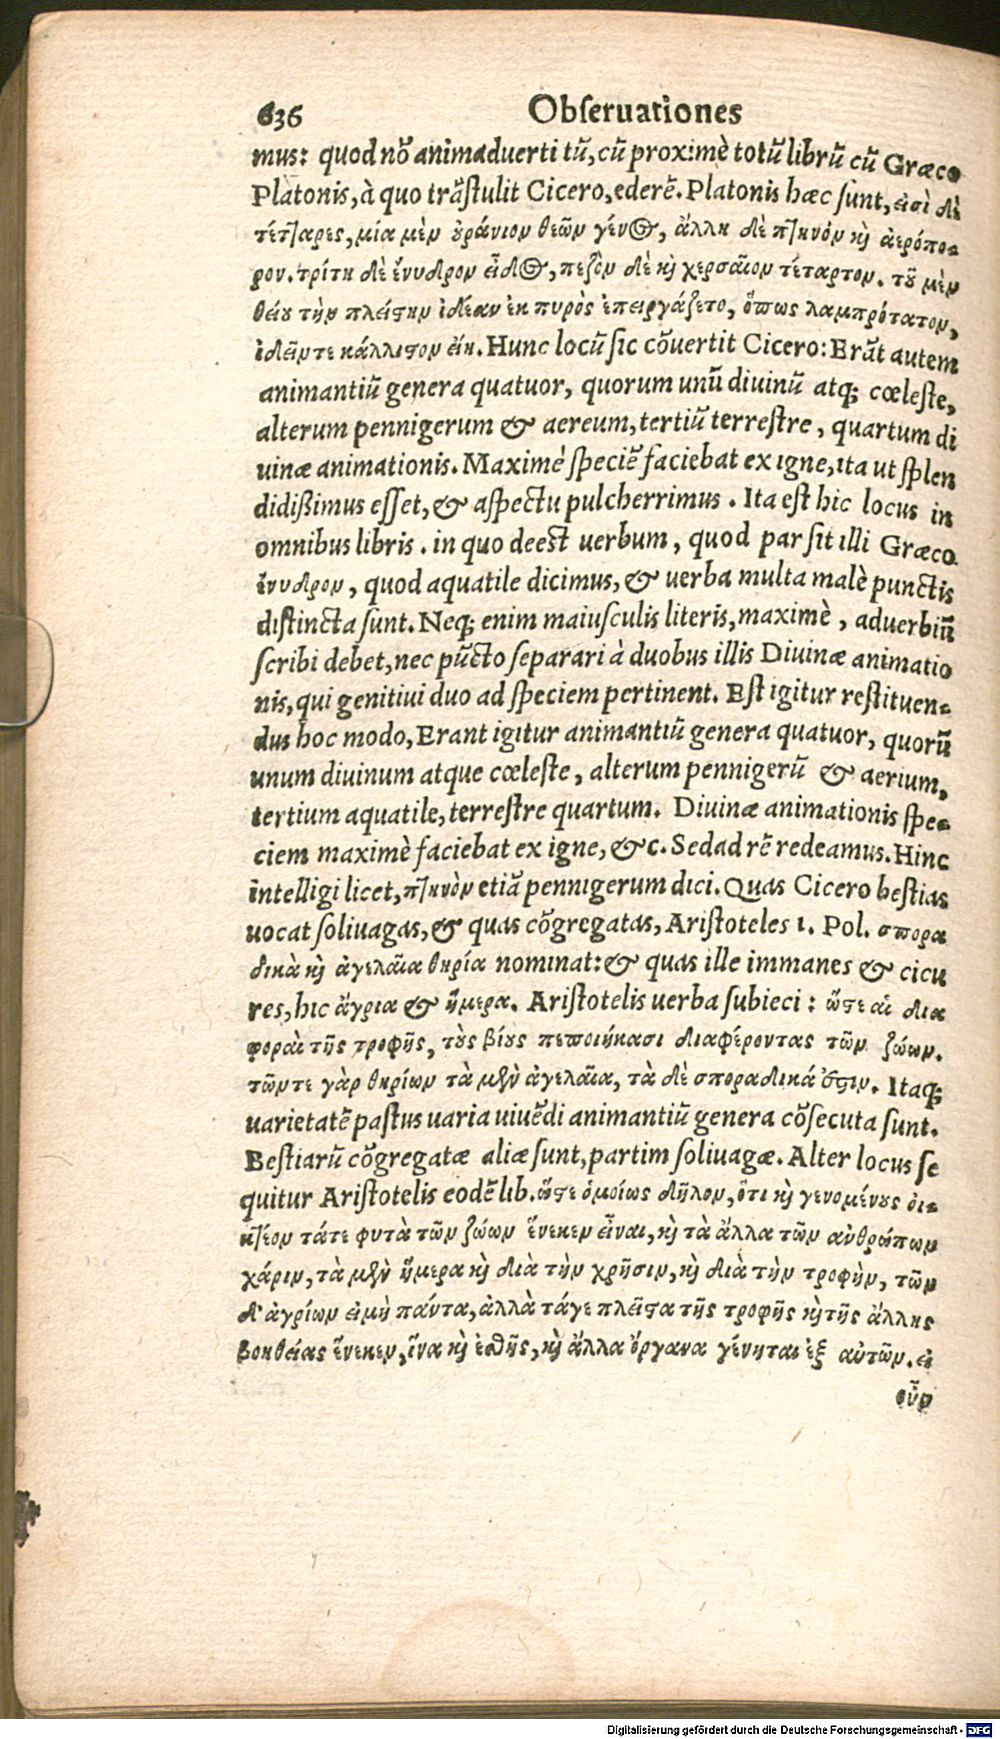 636 Obſeruationes
mus: quod nõ animaduerti tũ, cũ proximè totũ librũ cũ Græco
Platonis, à quo trãſtulit Cicero, ederẽ. Platonis hæc ſunt, εἰσὶ δὲ
τέτ]αρες, μία μὲν ȣράνιον θεῶν γένος, ἄλλη δὲ π]ηνὸν κὶ ἀερόπο-
ρον. τρίτη δὲ ἔνυδρον εἶδος, πεζὸν δὲ κὶ χερσαῖον τέταρτον. τȣ͂ μὲν
θείȣ τὴν πλείϛην ἰδέαν ἐκ πυρὸς ἐπειργάζετο, ὅπως λαμπρότατον,
ἰδεῖντε κάλλιϛον εἴη. Hunc locũ ſic cõuertit Cicero: Erãt autem
animantiũ genera quatuor, quorum unũ diuinũ atq; cœleſte,
alterum pennigerum & aereum, tertiũ terreſtre, quartum di
uinæ animationis. Maximè ſpeciẽ faciebat ex igne, ita ut ſplen
didißimus eſſet, & aſpectu pulcherrimus. Ita eſt hic locus in
omnibus libris. in quo deest uerbum, quod par ſit illi Græco
ἔνυδρον, quod aquatile dicimus, & uerba multa malè punctis
diſtincta ſunt. Neq; enim maiuſculis literis, maximè, aduerbiũ
ſcribi debet, nec pũcto ſeparari à duobus illis Diuinæ animatio
nis, qui genitiui duo ad ſpeciem pertinent. Eſt igitur reſtituen-
dus hoc modo, Erant igitur animantiũ genera quatuor, quorũ
unum diuinum atque cœleſte, alterum pennigerũ & aerium,
tertium aquatile, terreſtre quartum. Diuinæ animationis ſpe-
ciem maximè faciebat ex igne, &c. Sed ad rẽ redeamus. Hinc
intelligi licet, π]ηνὸν etiã pennigerum dici. Quas Cicero beſtias
uocat ſoliuagas, & quas cõgregatas, Ariſtoteles 1. Pol. σπορα
δικὰ κὶ ἀγελαῖα θηρία nominat: & quas ille immanes & cicu
res, hic ἄγρια & ἥμερα. Ariſtotelis uerba ſubieci: ὥϛε αἱ δια
φοραὶ τῆς τροφῆς, τȣ̀ς βίȣς πεποιήκασι διαφέροντας τῶν ζώων.
τῶντε γὰρ θηρίων τὰ μὲν ἀγελαῖα, τὰ δὲ σποραδικά ὄϛιν. Itaq;
uarietatẽ paſtus uaria uiuẽdi animantiũ genera cõſecuta ſunt.
Beſtiarũ cõgregatæ aliæ ſunt, partim ſoliuagæ. Alter locus ſe
quitur Ariſtotelis eodẽ lib. ὥϛε ὁμοίως δῆλον, ὅτι κὶ γενομένοις ὀι-
η]έον τάτε φυτὰ τῶν ζώων ἕνεκεν εἶναι, κὶ τὰ ἄλλα τῶν ἀνθρώπων
χάριν, τὰ μὲν ἥμερα κὶ διὰ τὴν χρῆσιν, κὶ διὰ τὴν τροφὴν, τῶν
δ' ἀγρίων εἰ μὴ πάντα, ἀλλὰ τάγε πλεῖϛα τῆς τροφῆς κὶ τῆς ἄλλης
βοηθείας ἕνεκεν, ἵνα κὶ ἐσθῆς, κὶ ἄλλα ὄργανα γένηται ἐξ αὐτῶν. εἰ
οὖν
Digitalisierung gefördert durch die Deutsche Forschungsgemeinschaft - DFG